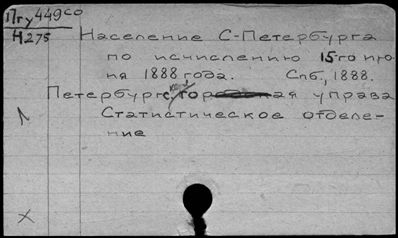 Пгу 449со
Н275
Население С-Петербурга
по исчислению 15-го ию
ня 1888 года. Спб., 1888.
Петербургская управа
Статистическое отделе-
ние